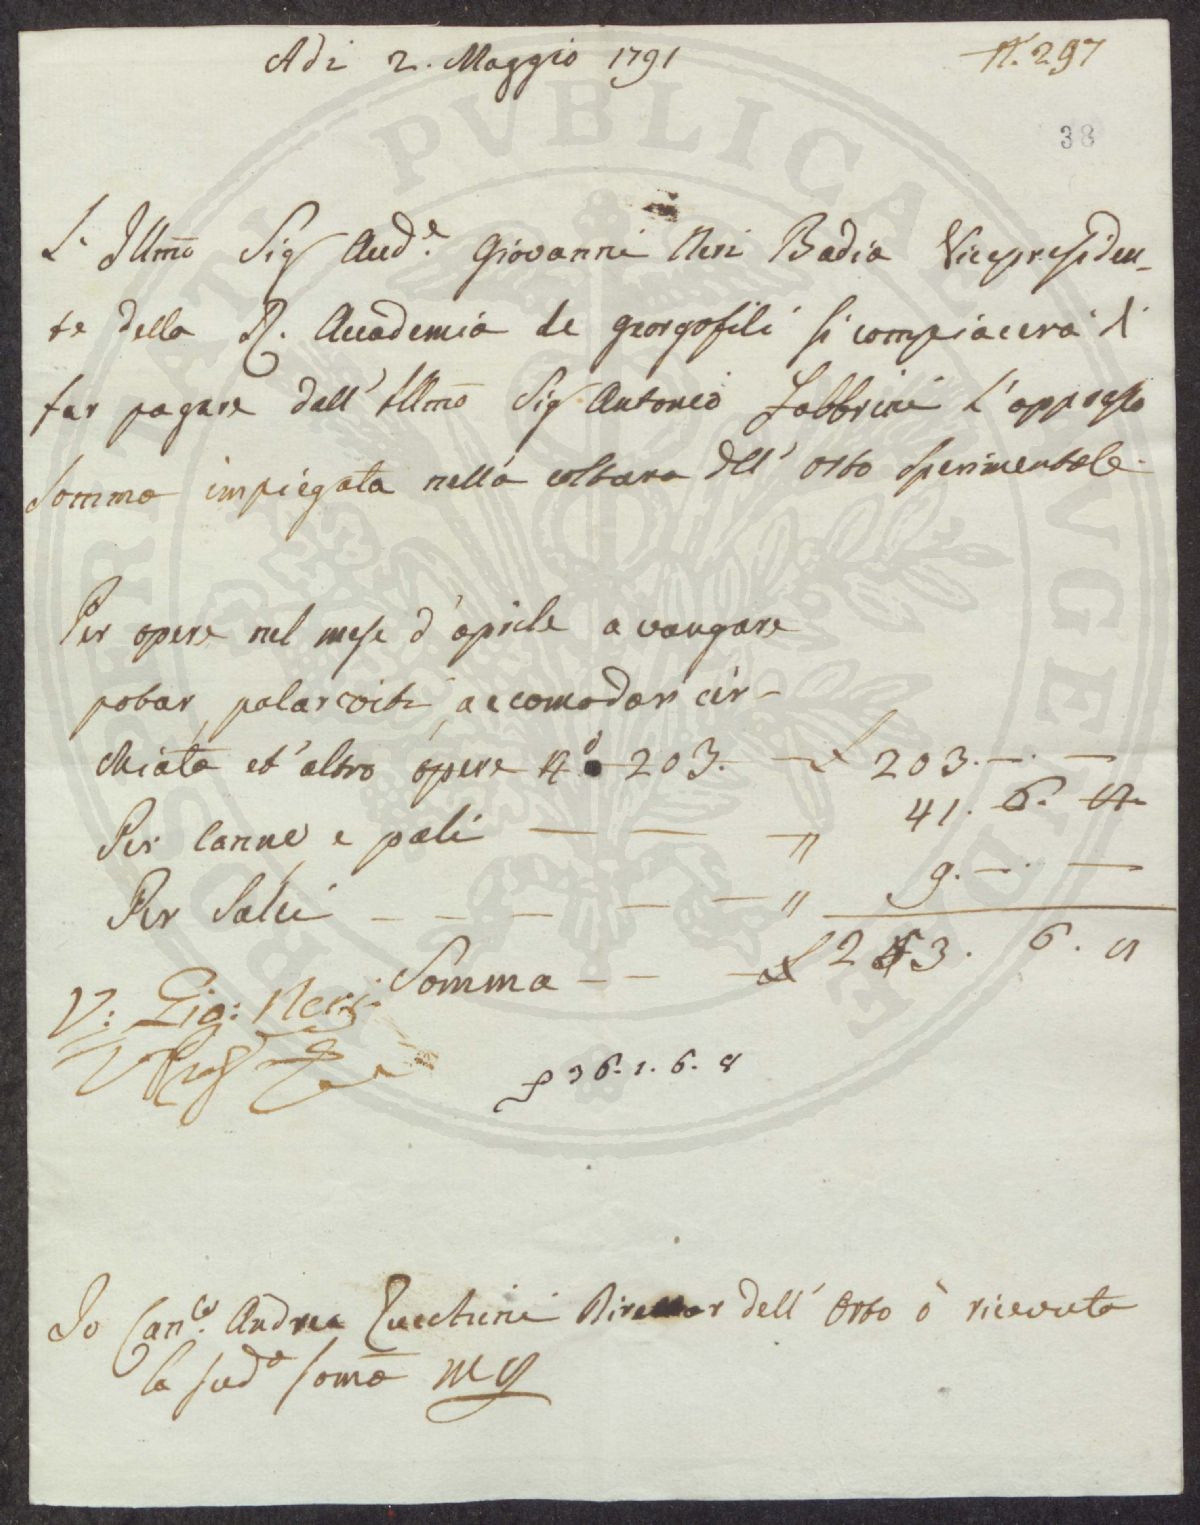 Adi 2. Maggio 1791
N. 297
38
L'Illmo Sig Aud.e Giovanni Neri Badia Vicepresiden-
te della R. Accademia de georgofili si compiacerà di
far pagare dall' Illmo Sig Antonio Fabbrini l'appresso
somma impiegata nella coltura dell' orto sperimentale.
Per opere nel mese d'aprile a vangare
potar, palar viti, accomodar cer-
chiata et' altro opere N.o 203. — £ 203. —. —
Per canne e pali — — — " 41. 6. 8
Per Salci — — — — — " 9. —. —
Somma — — — £ 253. 6. 8
V: Gio: Neri
V Pres
36. 1. 6. 8
Io Can.co Andrea Zucchini Direttor dell' Orto ò ricevuto
la sud.a somma mp
PUBLICAE